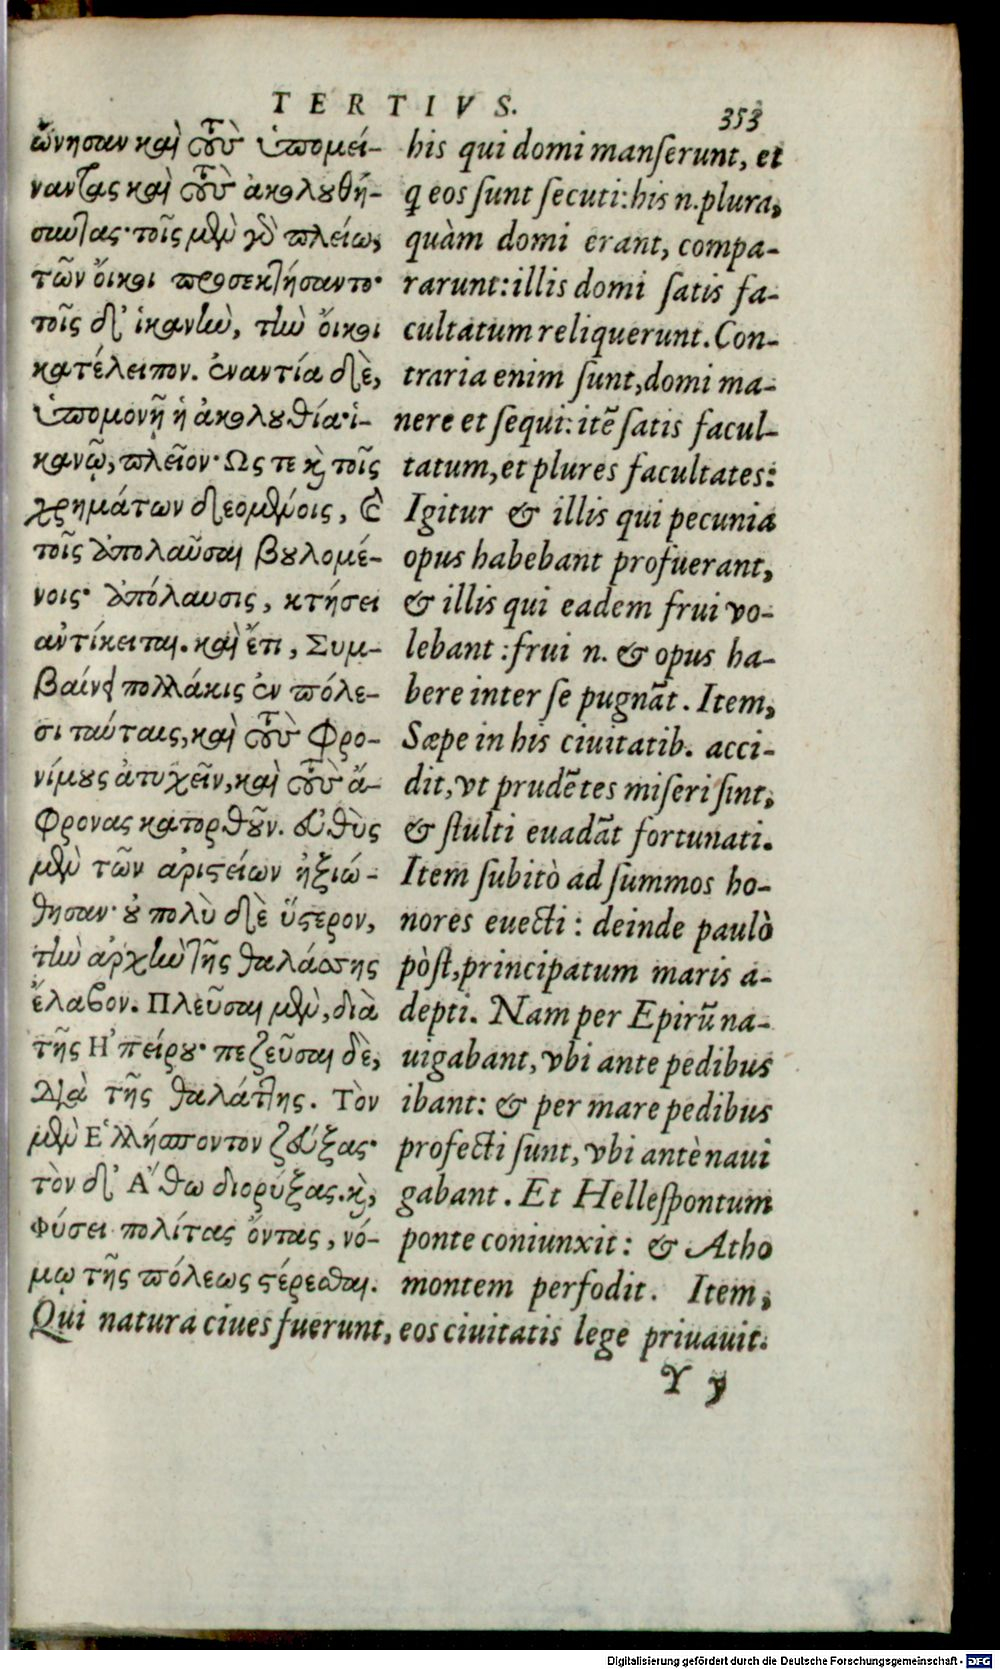 TERTIVS.
353
ώνησαν καὶ τοὺς ὑπομεί-
ναντας καὶ τοὺς ἀκολουθή-
σαντας· τοῖς μὲν γὸ πλείω,
τῶν οἴκοι προσεκτήσαντο·
τοῖς δ' ἱκανὴν, τὴν οἴκοι
κατέλειπον. ἐναντία δὲ,
ὑπομονῇ ἡ ἀκολουθία· ἱ-
κανῷ, πλεῖον· Ως τε κỳ τοῖς
χρημάτων δεομένοις, καὶ
τοῖς ἀπολαῦσαι βουλομέ-
νοις· ἀπόλαυσις, κτήσει
αντίκειται. καὶ ἔτι, Συμ-
βαίνει πολλάκις ἐν πόλε-
σι ταύταις, καὶ τοὺς φρο-
νίμους ἀτυχεῖν, καὶ τοὺς ἄ-
φρονας κατορθοῦν. εὐθὺς
μὲν τῶν ἀριστείων ἠξιώ-
θησαν· οὐ πολὺ δὲ ὕστερον,
τὴν ἀρχὴν τῆς θαλάσσης
ἔλαβον. Πλεῦσαι μὲν, διὰ
τῆς Η'πείρου· πεζεῦσαι δὲ,
Διὰ τῆς θαλάττης. Τὸν
μὲν Ε'λλήσποντον ζεύξας·
τὸν δ' Α'´θω διορύξας. κỳ,
Φύσει πολίτας ὄντας, νό-
μῳ τῆς πόλεως στέρεσθαι.
his qui domi manserunt, et
q eos sunt secuti: his n. plura,
quàm domi erant, compa-
rarunt: illis domi satis fa-
cultatum reliquerunt. Con-
traria enim sunt, domi ma-
nere et sequi: itē satis facul-
tatum, et plures facultates:
Igitur & illis qui pecunia
opus habebant profuerant,
& illis qui eadem frui vo-
lebant: frui n. & opus ha-
bere inter se pugnāt. Item,
Sæpe in his ciuitatib. acci-
dit, vt prudētes miseri sint,
& stulti euadāt fortunati.
Item subitò ad summos ho-
nores euecti: deinde paulò
pòst, principatum maris a-
depti. Nam per Epirū na-
uigabant, vbi ante pedibus
ibant: & per mare pedibus
profecti sunt, vbi antè naui
gabant. Et Hellespontum
ponte coniunxit: & Atho
montem perfodit. Item,
Qui natura ciues fuerunt, eos ciuitatis lege priuauit.
Y y
Digitalisierung gefördert durch die Deutsche Forschungsgemeinschaft - DFG